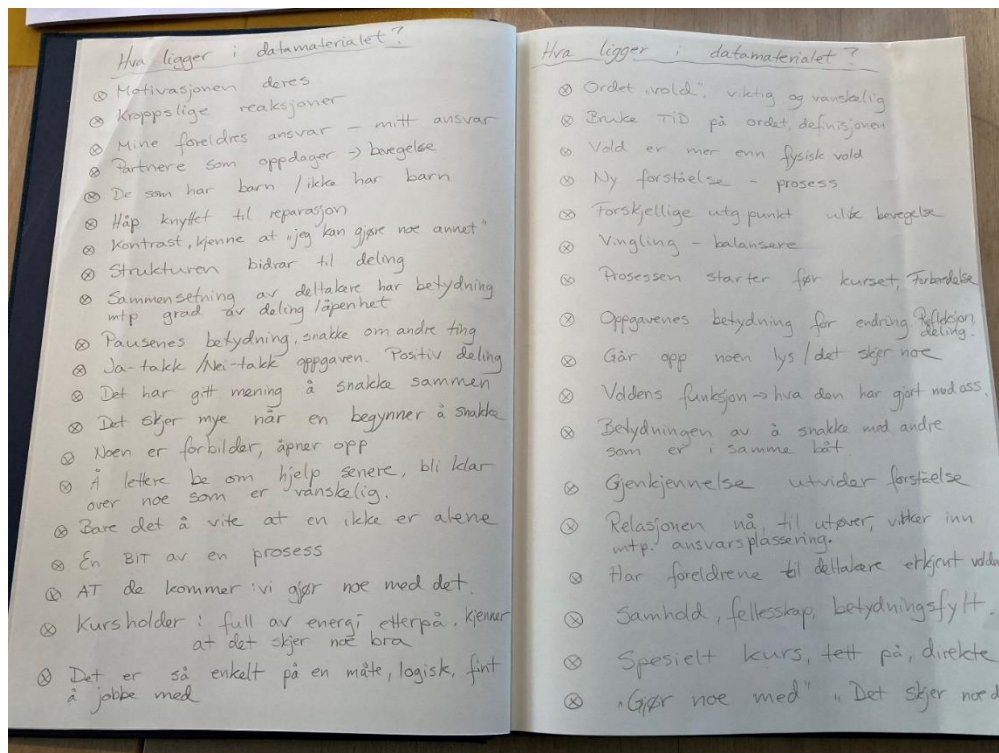 Hva ligger i datamaterialet?
⊗ Motivasjonen deres
⊗ Kroppslige reaksjoner
⊗ Mine foreldres ansvar – mitt ansvar
⊗ Partnere som oppdager → bevegelse
⊗ De som har barn / ikke har barn
⊗ Håp knyttet til reparasjon
⊗ Kontrast, kjenne at "jeg kan gjøre noe annet"
⊗ Strukturen bidrar til deling
⊗ Sammensetning av deltakere har betydning
mtp grad av deling / åpenhet
⊗ Pausenes betydning, snakke om andre ting
⊗ Ja-takk / Nei-takk oppgaven. Positiv deling
⊗ Det har gitt mening å snakke sammen
⊗ Det skjer mye når en begynner å snakke
⊗ Noen er forbilder, åpner opp
⊗ Å lettere be om hjelp senere, bli klar
over noe som er vanskelig.
⊗ Bare det å vite at en ikke er alene
⊗ En BIT av en prosess
⊗ AT de kommer : vi gjør noe med det.
⊗ Kursholder : full av energi etterpå. Kjenner
at det skjer noe bra
⊗ Det er så enkelt på en måte, logisk, fint
å jobbe med
Hva ligger i datamaterialet?
⊗ Ordet "vold", viktig og vanskelig
⊗ Bruke TiD på ordet, definisjonen
⊗ Vold er mer enn fysisk vold
⊗ Ny forståelse – prosess
⊗ Forskjellige utg punkt ulik bevegelse
⊗ Vingling – balansere
⊗ Prosessen starter før kurset, Forberedelse
⊗ Oppgavenes betydning for endring Refleksjon
deling.
⊗ Går opp noen lys / det skjer noe
⊗ Voldens funksjon → hva den har gjort med oss.
⊗ Betydningen av å snakke med andre
som er i samme båt.
⊗ Gjenkjennelse utvider forståelse
⊗ Relasjonen nå, til utøver, virker inn
mtp. ansvarsplassering.
⊗ Har foreldrene til deltakere erkjent
⊗ Samhold, fellesskap, betydningsfylt.
⊗ Spesielt kurs, tett på, direkte
⊗ "Gjør noe med" "Det skjer noe